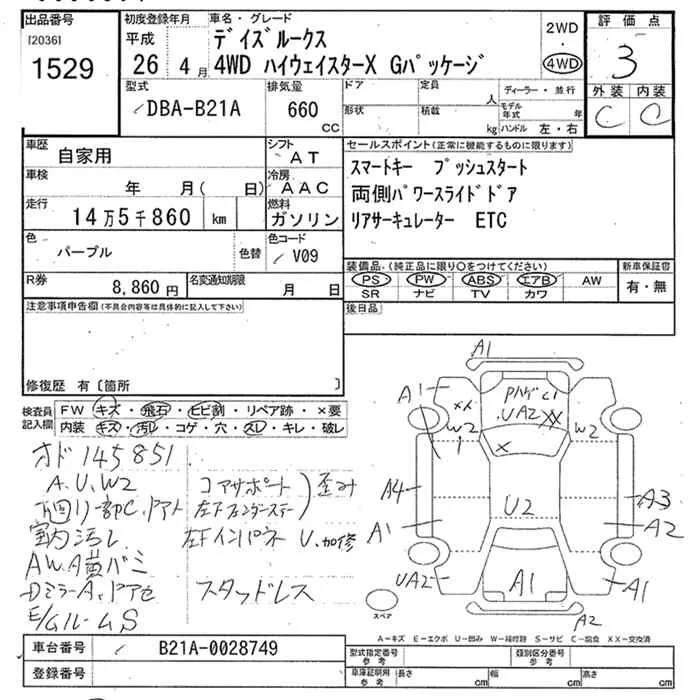 出品番号
[2036]
1529
初度登録年月
平成
26 4月
車名・グレード
デイズルークス
4WD ハイウェイスターX Gパッケージ
2WD
・
4WD
評価点
3
外装 内装
C C
型式
DBA-B21A
排気量
660
CC
ドア
形状
定員
人
積載
kg
ディーラー・並行
モデル年式 年
ハンドル 左・右
車歴
自家用
シフト
AT
車検
年 月( 日)
冷房
AAC
走行
14万5千860 km
燃料
ガソリン
色
パープル
色替
色コード
V09
R券
8,860円
名変通知期限
月 日
セールスポイント(正常に機能するものに限ります)
スマートキー プッシュスタート
両側パワースライドドア
リアサーキュレーター ETC
装備品(純正品に限り○をつけてください)
新車保証書
PS PW ABS エアB AW
SR ナビ TV カワ
有・無
後日品
注意事項申告欄(不具合内容等は具体的に記入して下さい)
修復歴 有〔箇所 〕
検査員記入欄
FW キズ・飛石・ヒビ割・リペア跡・×要
内装 キズ・汚レ・コゲ・穴・スレ・キレ・破レ
オド 145851
A.U.W2
下回リ一部C.ドアト
室内汚レ
AW.A黄バミ
DミラーA.
コアサポート
左下フェンダーステー
歪み
左下インパネ U.加修
スタッドレス
A1
A1
XX
W2
UA2
XX
W2
X
A4
A1
U2
A3
A2
UA2
A1
A1
A2
スペア
A-キズ E-エクボ U-凹み W-補修跡 S-サビ C-腐食 XX-交換済
車台番号
B21A-0028749
登録番号
型式指定番号
参考
類別区分番号
参考
車庫証明用
参考
長さ cm
幅 cm
高さ cm